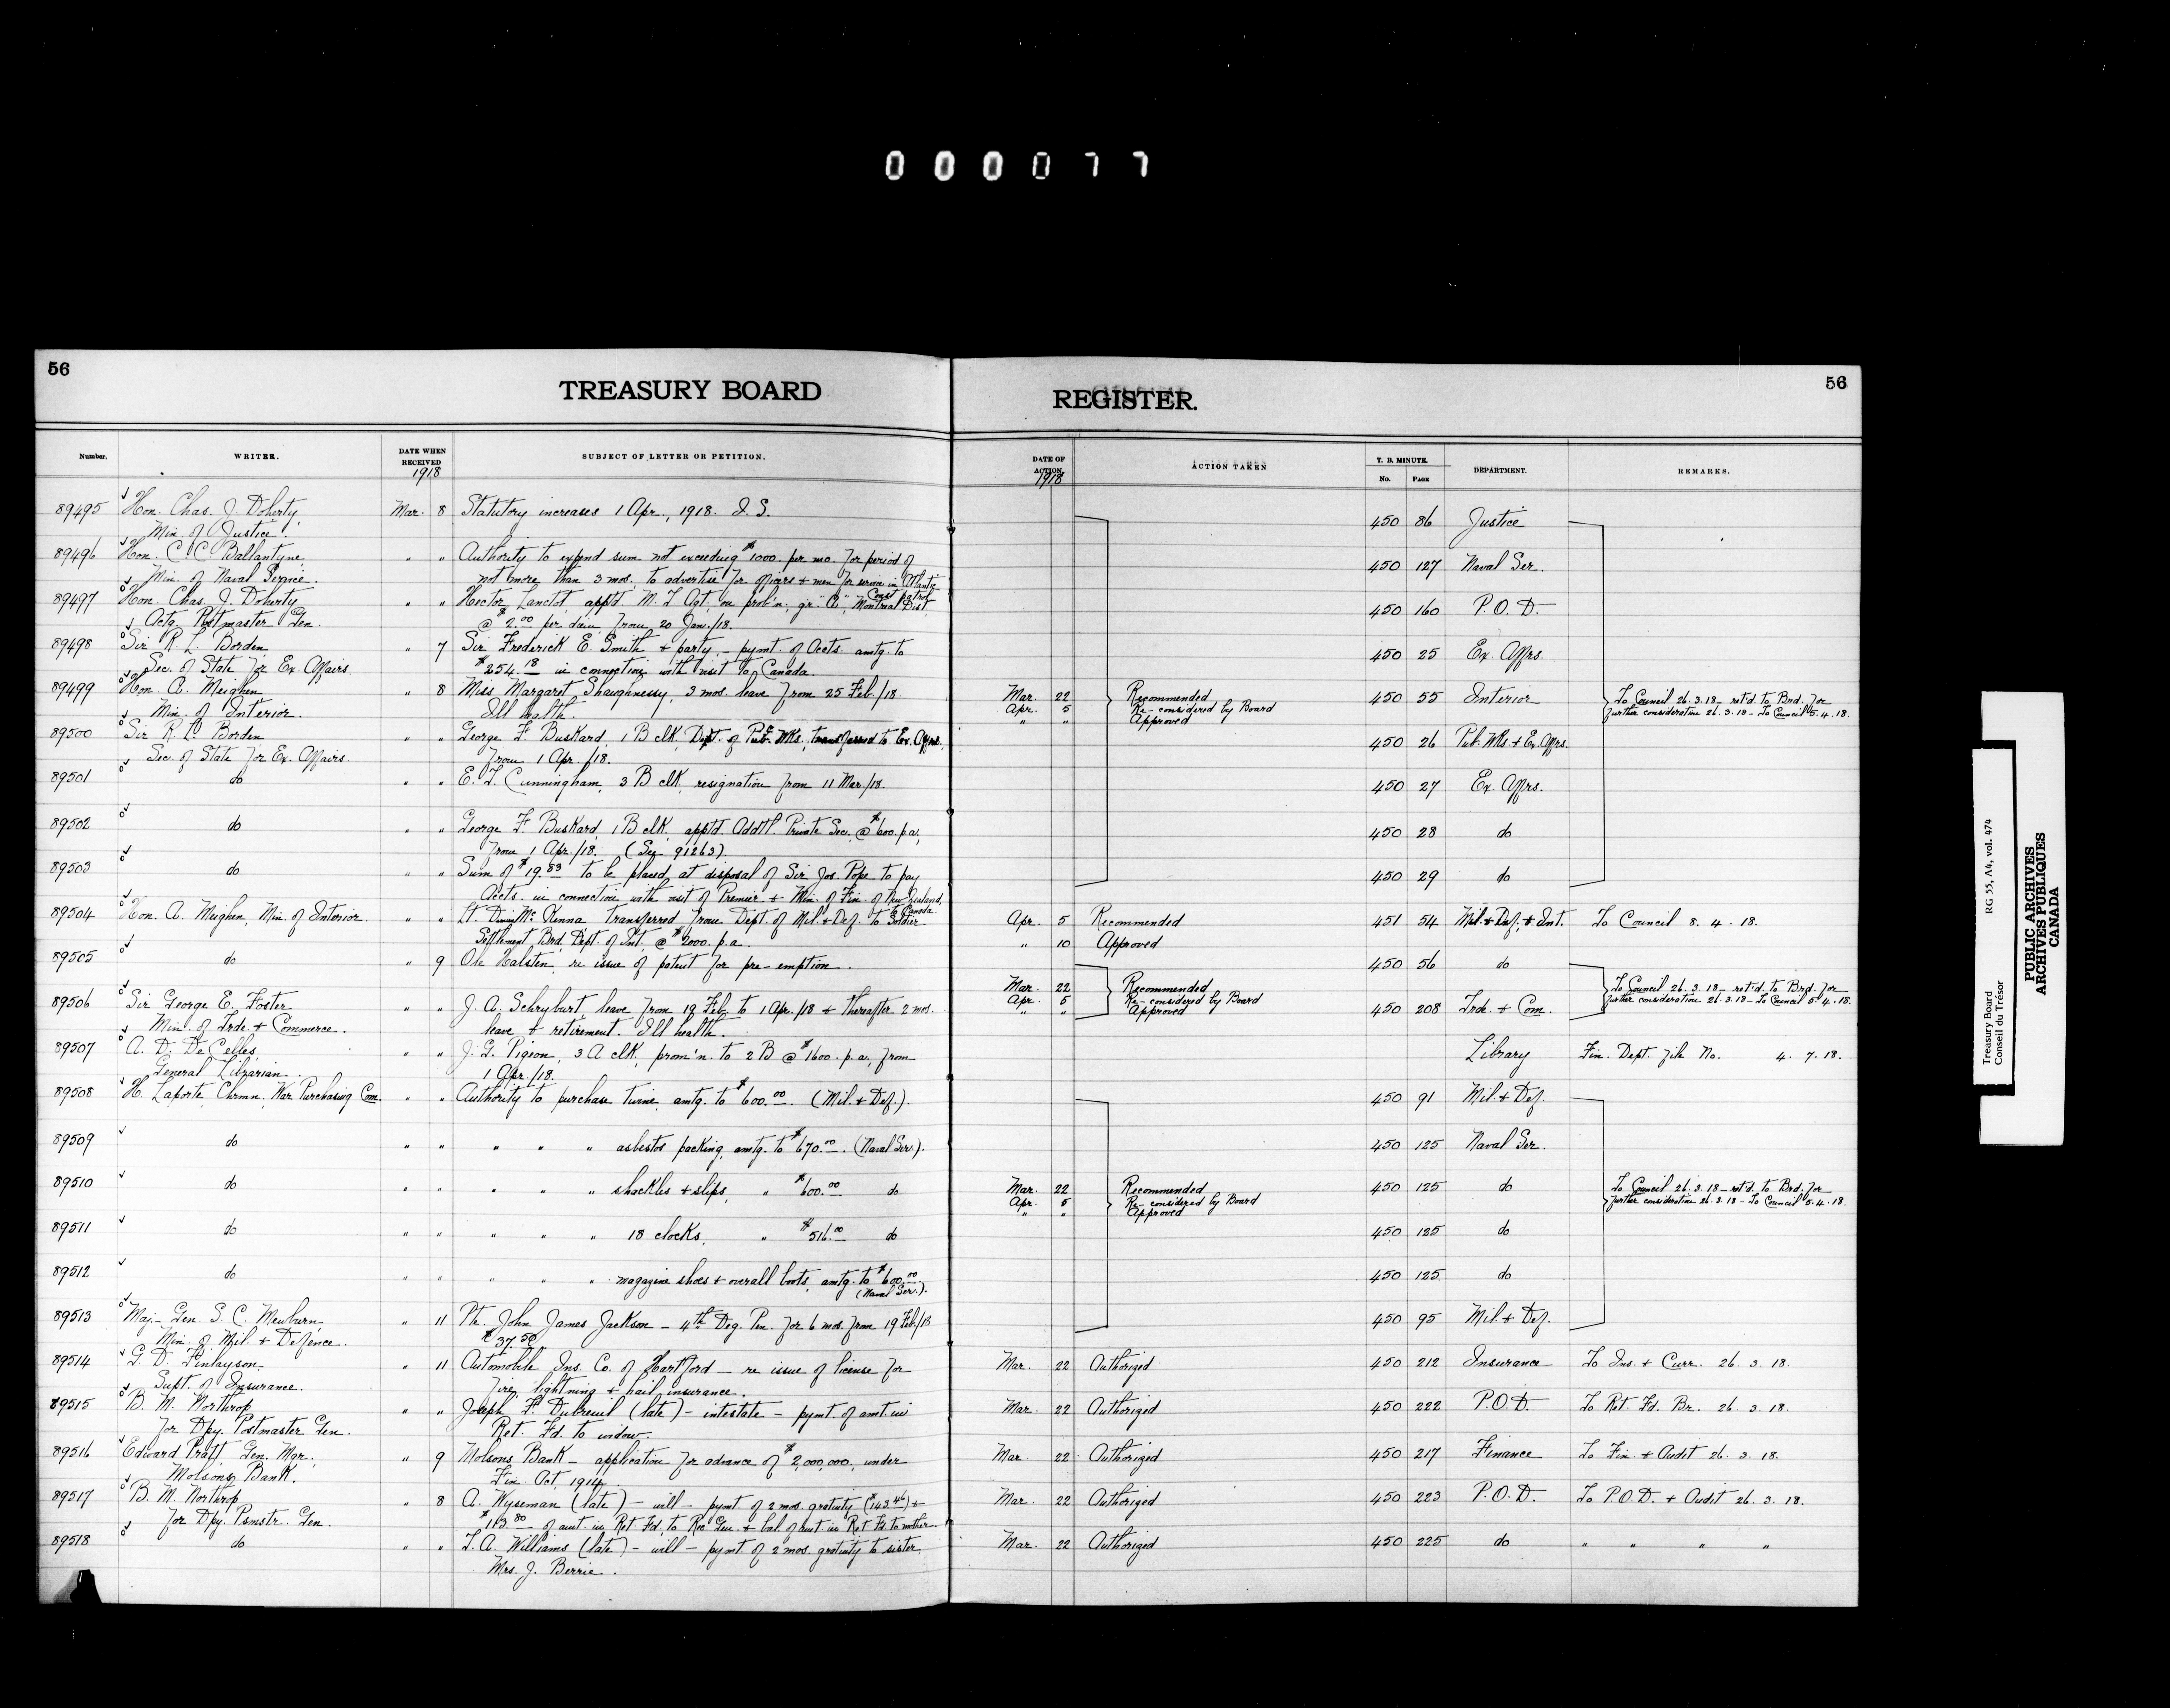 000077
56
TREASURY BOARD
Number.
WRITER.
DATE WHEN RECEIVED
1918
SUBJECT OF LETTER OR PETITION.
89495 Hon. Chas. J. Doherty, Mar. 8 Statutory increases 1 Apr., 1918. I.S.
Min. of Justice.
89496 Hon. C. C. Ballantyne, " " Authority to expend sum not exceeding $1000. per mo. for period of
Min. of Naval Service. not more than 3 mos. to advertise for officers + men for service in Atlantic
Coast patrol
89497 Hon. Chas. J. Doherty " " Hector Lanctot, apptd. M. T. Agt. on prob'n, gr. "A", Montreal Dist.
Actg. Postmaster Gen. @ $2.00 per diem from 20 Jan./18.
89498 Sir R. L. Borden, " 7 Sir Frederick E. Smith + party - pymt. of Accts. amtg. to
Sec. of State for Ex. Affairs. $254.18 in connection with visit to Canada.
89499 Hon. A. Meighen, " 8 Miss Margaret Shaughnessy, 3 mos. leave from 25 Feb./18.
Min. of Interior. Ill health.
89500 Sir R. L. Borden " " George F. Buskard, 1 B clk, Dept. of Pub. Wks., transferred to Ex. Affrs.
Sec. of State for Ex. Affairs. from 1 Apr./18.
89501 do " " E. T. Cunningham, 3 B clk, resignation from 11 Mar./18.
89502 do " " George F. Buskard, 1 B clk, apptd. Addtl. Private Sec. @ $600. p.a.,
from 1 Apr./18. (See 91263).
89503 do " " Sum of $19.83 to be placed at disposal of Sir Jos. Pope to pay
Accts. in connection with visit of Premier + Min. of Fin. of New Zealand,
to Canada.
89504 Hon. A. Meighen, Min. of Interior. " " Lt. McKenna transferred from Dept. of Mil. + Def. to Soldier
Settlement Brd., Dept. of Int. @ $2000. p.a.
89505 do " 9 Ole Halsten, re issue of patent for pre-emption.
89506 Sir George E. Foster " " J. A. Schryburt, leave from 19 Feb. to 1 Apr./18 + thereafter 2 mos.
Min. of Trde. + Commerce. leave + retirement. Ill health.
89507 A. D. DeCelles, " " J. G. Pigeon, 3 A clk, prom'n. to 2 B @ $1600. p.a., from
General Librarian. 1 Apr./18.
89508 H. Laporte, Chrmn., War Purchasing Com. " " Authority to purchase twine, amtg. to $600.00. (Mil. + Def.).
89509 do " " " " " asbestos packing, amtg. to $670.00. (Naval Ser.).
89510 do " " " " " shackles + slips, " $600.00 do
89511 do " " " " " 18 clocks, " $516.00 do
89512 do " " " " " magazine shoes + overall boots, amtg. to $600.00
(Naval Ser.).
89513 Maj.-Gen. S. C. Mewburn " 11 Pte. John James Jackson - 4th Deg. Pen. for 6 mos. from 19 Feb./18
Min. of Mil. + Defence. $37.50
89514 G. D. Finlayson " 11 Automobile Ins. Co. of Hartford - re issue of license for
Supt. of Insurance. fire, lightning + hail insurance.
89515 B. M. Northrop " " Joseph F. Dubreuil (late) - intestate - pymt. of amt. in
for Dpy. Postmaster Gen. Ret. Fd. to widow.
89516 Edward Pratt, Gen. Mgr., " 9 Molsons Bank - application for advance of $2,000,000, under
Molsons Bank. Fin. Act, 1914.
89517 B. M. Northrop " 8 A. Wyseman (late) - will - pymt of 2 mos. gratuity ($143.46) +
for Dpy. Psmstr. Gen. $113.80 of amt. in Ret. Fd. to Rec. Gen. + bal. of amt in Ret. Fd. to mother.
89518 do " " T. A. Williams (late) - will - pymt of 2 mos. gratuity to sister.
Mrs. J. Berrie.
REGISTER.
56
DATE OF ACTION
1918
ACTION TAKEN
T. B. MINUTE.
No. PAGE
DEPARTMENT.
REMARKS.
450 86 Justice
450 127 Naval Ser.
450 160 P.O.D.
450 25 Ex. Affrs.
Mar. 22 Recommended 450 55 Interior To Council 26.3.18 - ret'd. to Brd. for
Apr. 5 Re-considered by Board further consideration 26.3.18 - To Council 5.4.18.
" " Approved
450 26 Pub. Wks. + Ex. Affrs.
450 27 Ex. Affrs.
450 28 do
450 29 do
Apr. 5 Recommended 451 54 Mil. + Def. + Int. To Council 8.4.18.
" 10 Approved
450 56 do
Mar. 22 Recommended To Council 26.3.18 - ret'd. to Brd. for
Apr. 5 Re-considered by Board further consideration 26.3.18 - To Council 5.4.18.
" " Approved 450 208 Trde. + Com.
Library Fin. Dept. file No. 4.7.18.
450 91 Mil. + Def.
450 125 Naval Ser.
Mar. 22 Recommended 450 125 do To Council 26.3.18 - ret'd. to Brd. for
Apr. 5 Re-considered by Board further consideration 26.3.18 - To Council 5.4.18.
" " Approved
450 125 do
450 125 do
450 95 Mil. + Def.
Mar. 22 Authorized 450 212 Insurance To Ins. + Curr. 26.3.18.
Mar. 22 Authorized 450 222 P.O.D. To Ret. Fd. Br. 26.3.18.
Mar. 22 Authorized 450 217 Finance To Fin. + Audit 26.3.18.
Mar. 22 Authorized 450 223 P.O.D. To P.O.D. + Audit 26.3.18.
Mar. 22 Authorized 450 225 do " " " "
Treasury Board RG 55, A4, vol. 474
Conseil du Trésor
PUBLIC ARCHIVES
ARCHIVES PUBLIQUES
CANADA